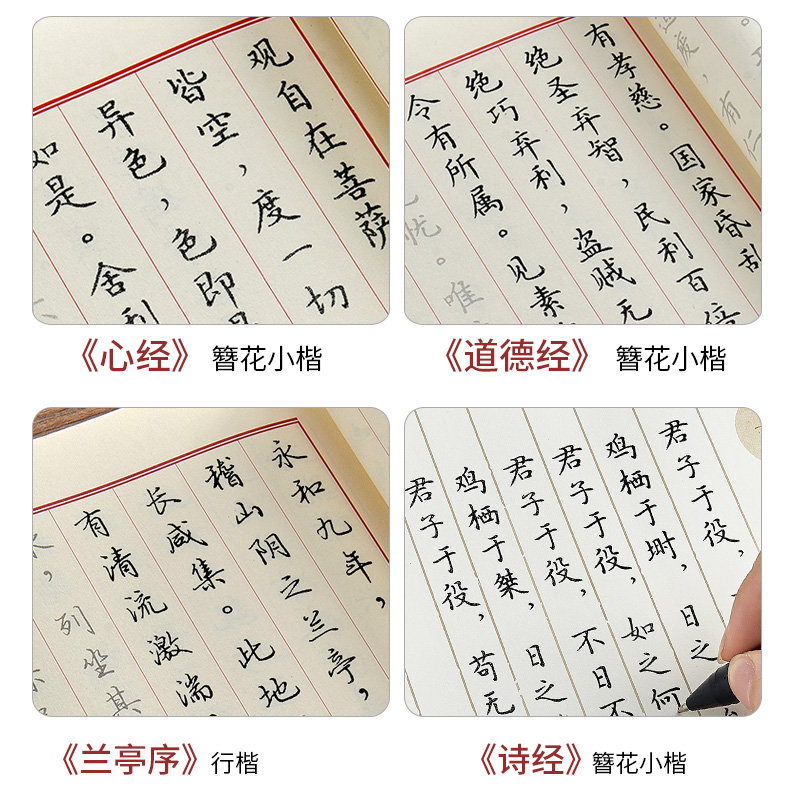 观自在菩萨
皆空，度一切
异色，色即
如是。舍利
《心经》 簪花小楷
有仁
有孝慈。国家昏乱
绝圣弃智，民利百倍
绝巧弃利，盗贼无
令有所属。见素
忧。唯
《道德经》 簪花小楷
永和九年，
稽山阴之兰亭，
长咸集。此地
有清流激湍，
列坐其
《兰亭序》行楷
君子于役，
鸡栖于埘，日之
君子于役，如之何
君子于役，不日不
鸡栖于桀，日之
君子于役，苟无
《诗经》簪花小楷